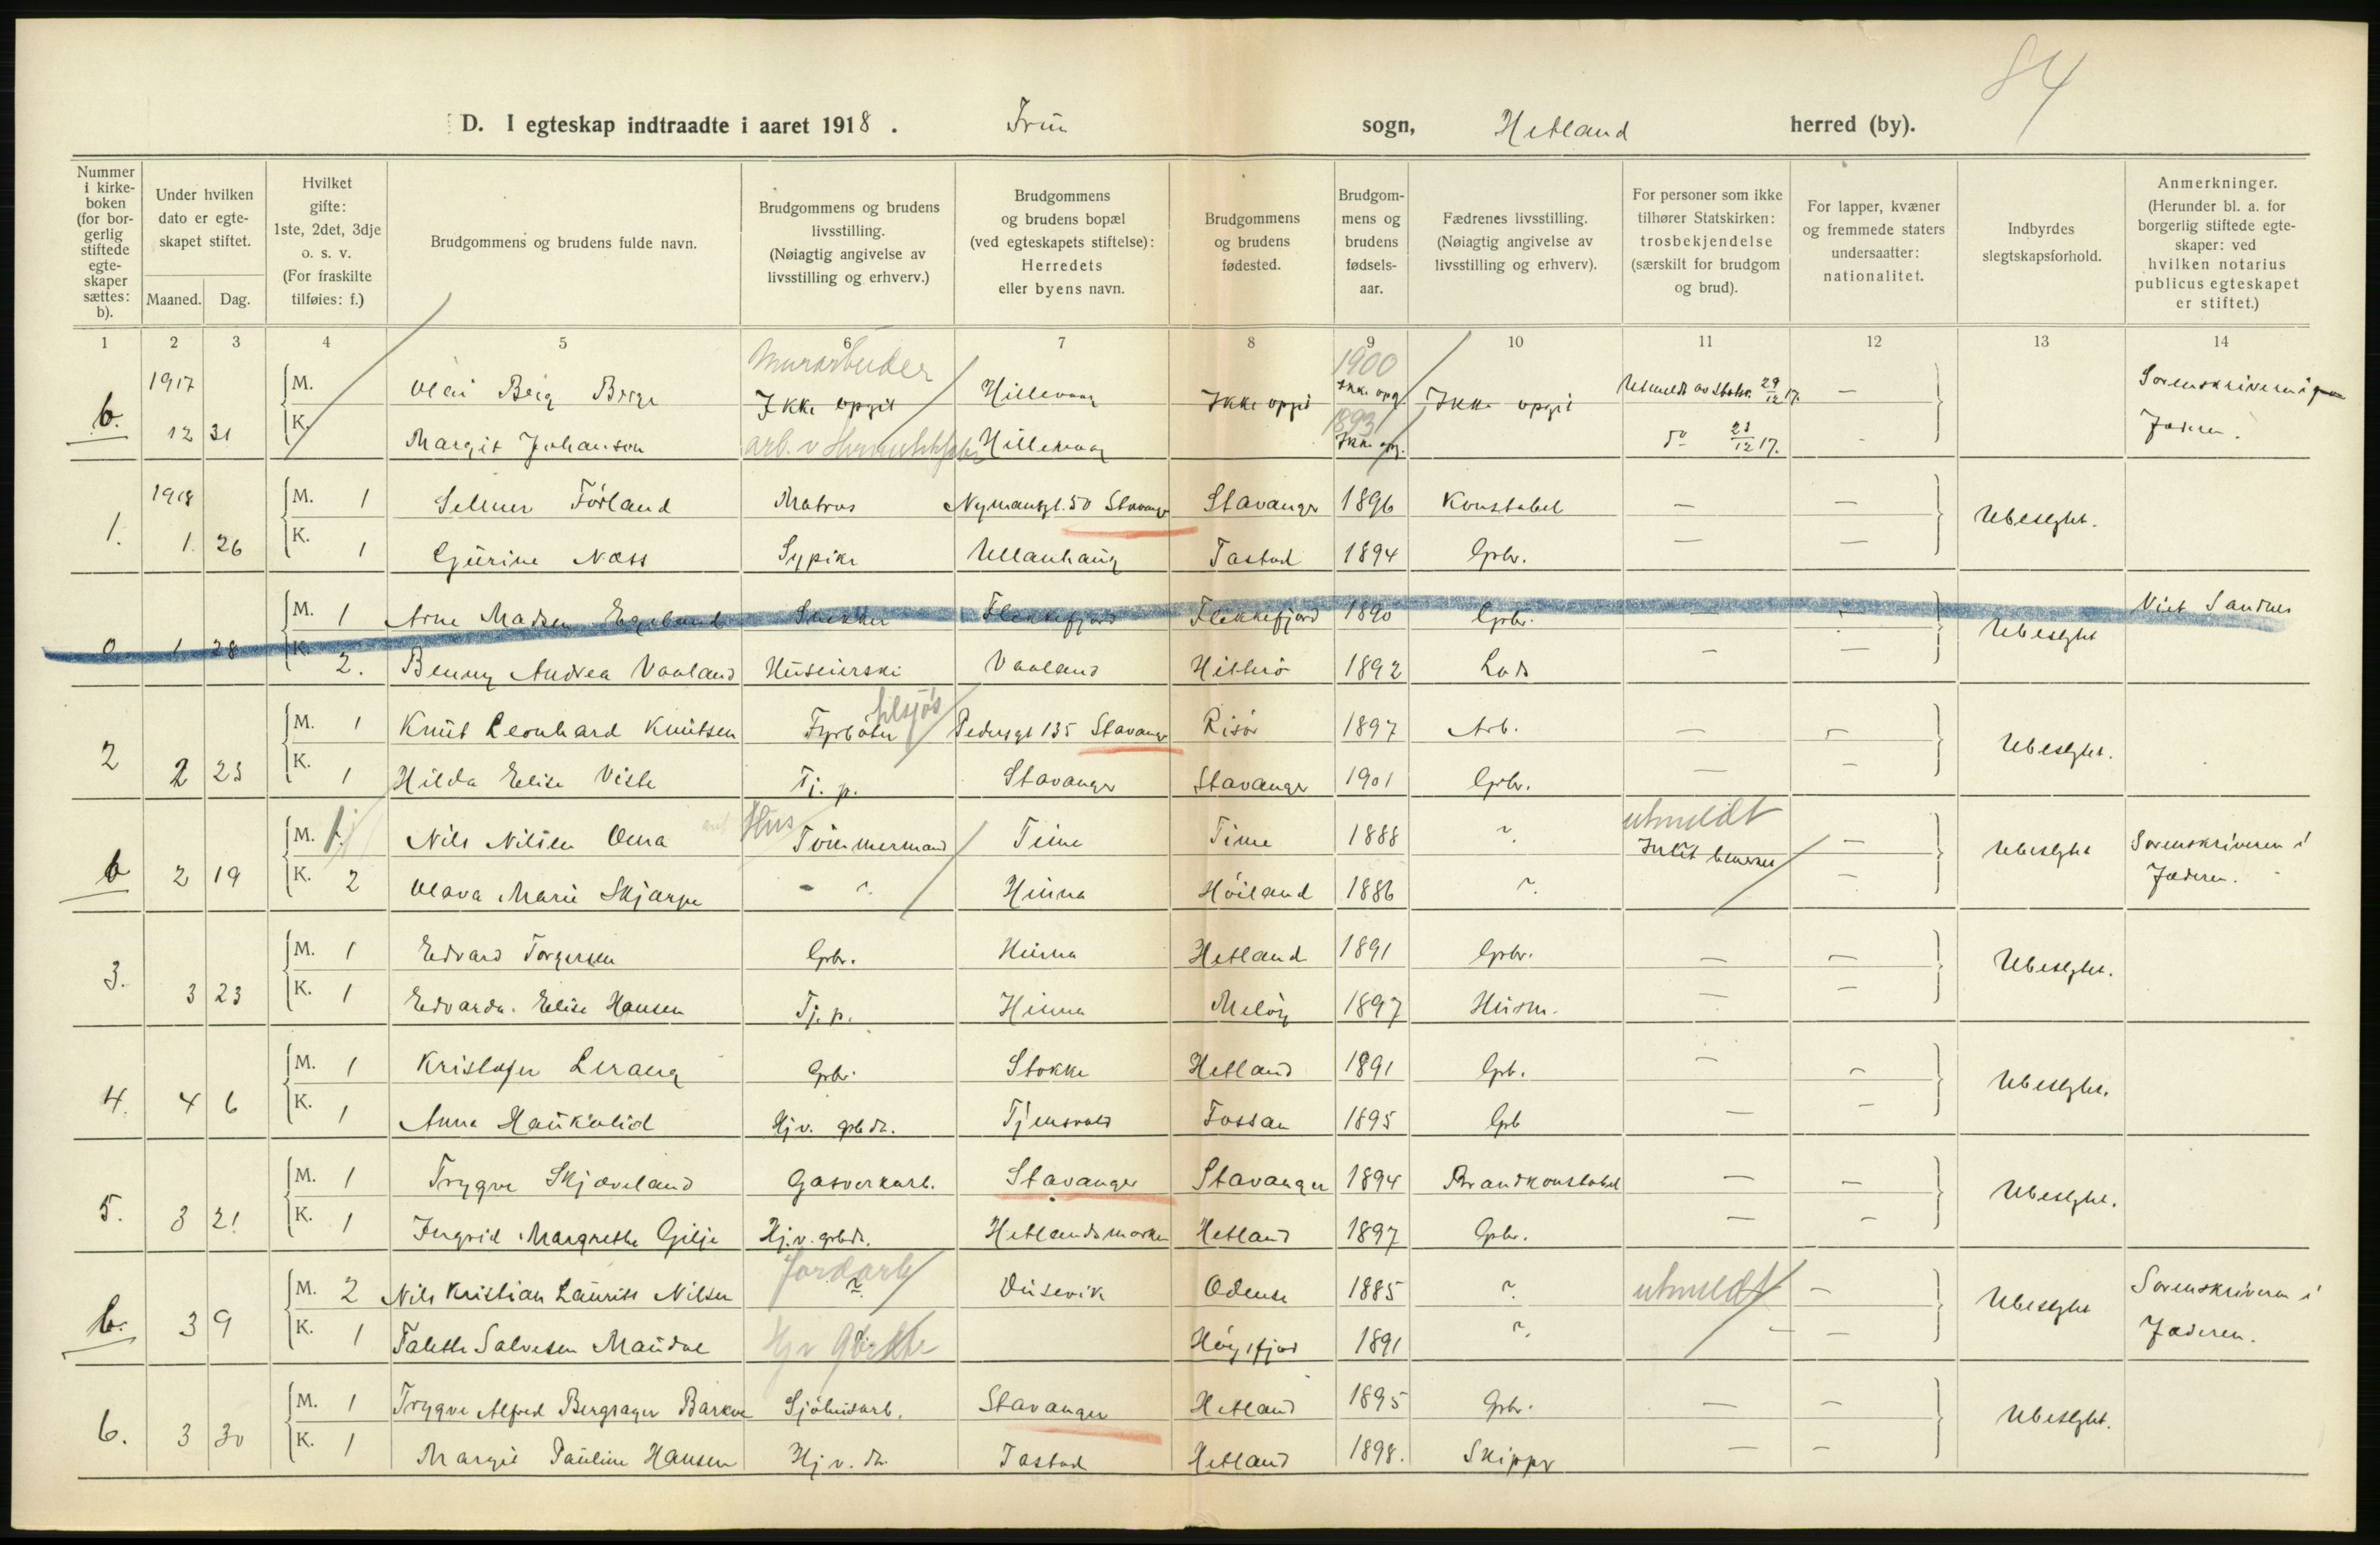 84
D. I egteskap indtraadte i aaret 1918. Frue sogn, Hetland herred (by).
Nummer i kirkeboken (for borgerlig stiftede egteskaper sættes: b).
Under hvilken dato er egteskapet stiftet.
Maaned. Dag.
Hvilket gifte: 1ste, 2det, 3dje o. s. v. (For fraskilte tilføies: f.)
Brudgommens og brudens fulde navn.
Brudgommens og brudens livsstilling. (Nøiagtig angivelse av livsstilling og erhverv.)
Brudgommens og brudens bopæl (ved egteskapets stiftelse): Herredets eller byens navn.
Brudgommens og brudens fødested.
Brudgommens og brudens fødselsaar.
Fædrenes livsstilling. (Nøiagtig angivelse av livsstilling og erhverv).
For personer som ikke tilhører Statskirken: trosbekjendelse (særskilt for brudgom og brud).
For lapper, kvæner og fremmede staters undersaatter: nationalitet.
Indbyrdes slegtskapsforhold.
Anmerkninger. (Herunder bl. a. for borgerlig stiftede egteskaper: ved hvilken notarius publicus egteskapet er stiftet.)
1 2 3 4 5 6 7 8 9 10 11 12 13 14
Murarbeider 1900
1917 M. Olai Berg Ikke opgit Hillevaag Ikke opgit Ikke opg. Ikke opgit Utmeldt av Statsk. 29/12 17. — Sorenskriveren i
b. 12 31 K. Margit Johansen arb. v Hillevaag 1893 Ikke opg. do 23/12 17. - Jæderen.
1918 M. 1 Selmer Förland Matros Nymansgt. 50 Stavanger Stavanger 1896 Konstabel — —
1. 1. 26 K. 1 Gurine Næss Sypike Ullanhaug Tastad 1894 Gbr. — — Ubeslgtet.
M. 1 Arne Madsen Egeland Snekker Flekkefjord Flekkefjord 1890 Gbr. — — Viet Sandnes
1 28 K. 2. Benny Andrea Vaaland Husmorski Vaaland Hitterö 1892 Lods — — Ubeslgtet
M. 1 Knut Leonhard Knutsen Fyrböter tilsjös Pedersgt 135 Stavanger Risör 1897 Arb. — —
2 2 23 K. 1 Hilda Elise Viste Tj. p. Stavanger Stavanger 1901 Gbr. — — Ubeslgtet.
M. 1 Nils Nilsen Oma Hus Tömmermand Time Time 1888 ~ utmeldt Intet bemerket — Ubeslgtet Sorenskriveren i
b 2 19 K. 2 Olava Marie Skjærpe - ~. Hinna Höiland 1886 ~. — Jæderen.
M. 1 Edvard Torgersen Gbr. Hinna Hetland 1891 Gbr. — —
3. 3 23 K. 1 Edvarda Elise Hansen Tj. p. Hinna Melöy 1897 Husm. — — Ubeslgtet.
M. 1 Kristofer Lerang Gbr. Stokke Hetland 1891 Gb. — —
4. 4 6 K. 1 Anna Haukalid Hj v. gbdr. Tjensvold Fossan 1895 Gb — — Ubeslgtet.
M. 1 Trygve Skjæveland Gasverkarb. Stavanger Stavanger 1894 Brandkonstabel — —
5. 3 21 K. 1 Ingrid Margrethe Gilje Hj. v. gbdr. Hetlandsmarken Hetland 1897 Gbr. — — Ubeslgtet.
M. 2 Nils Kristian Laurits Nilsen Jordarb ~ Dusevik Odense 1885 ~. utmeldt — Ubeslgtet Sorenskriveren i
b. 3 9 K. 1 Talette Salvesen Maudal Hjv Högsfjord 1891 ~. — — Jæderen.
M. 1 Trygve Alfred Bergsager Barkve Sjöhusarb. Stavanger Hetland 1895 Gbr. — —
6. 3 30 K. 1 Margit Pauline Hansen Hj v. dr. Tastad Hetland 1898. Skipper — — Ubeslgtet.